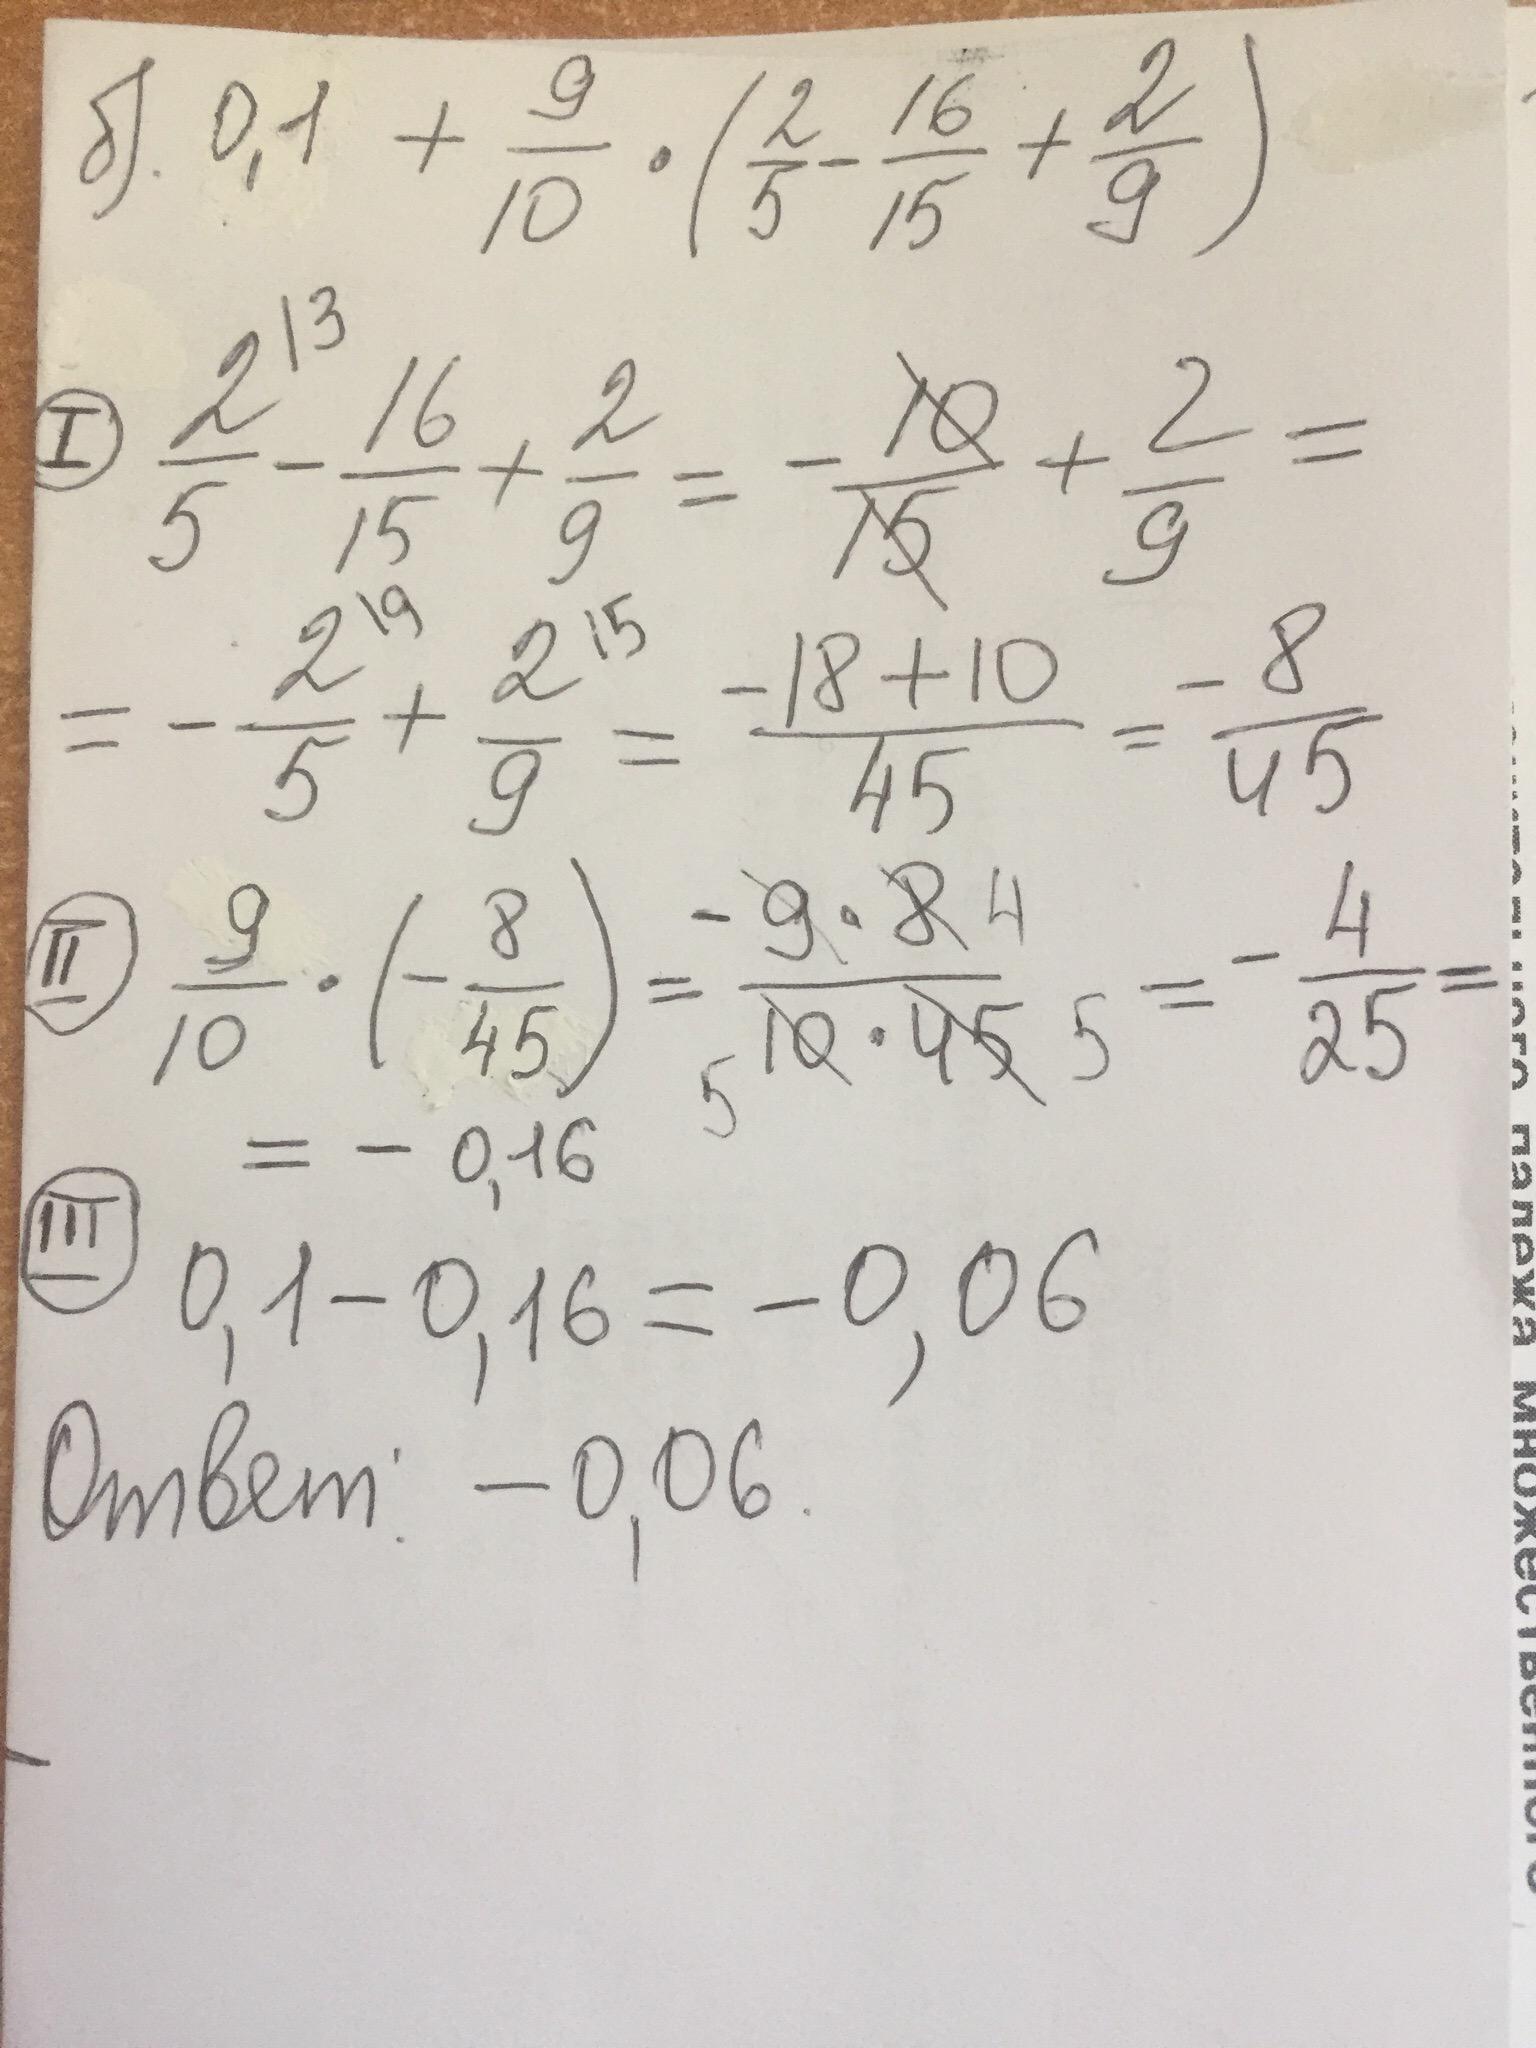 б). 0,1 + 9/10 · (2/5 - 16/15 + 2/9)
I 2/5 \3 - 16/15 + 2/9 = - 10/15 + 2/9 =
= - 2/5 \9 + 2/9 \5 = -18+10/45 = - 8/45
II 9/10 · (- 8/45) = - 9·8 4/5 10·45 5 = - 4/25 =
= - 0,16
III 0,1 - 0,16 = - 0,06
Ответ: - 0,06.
ного падежа множественного